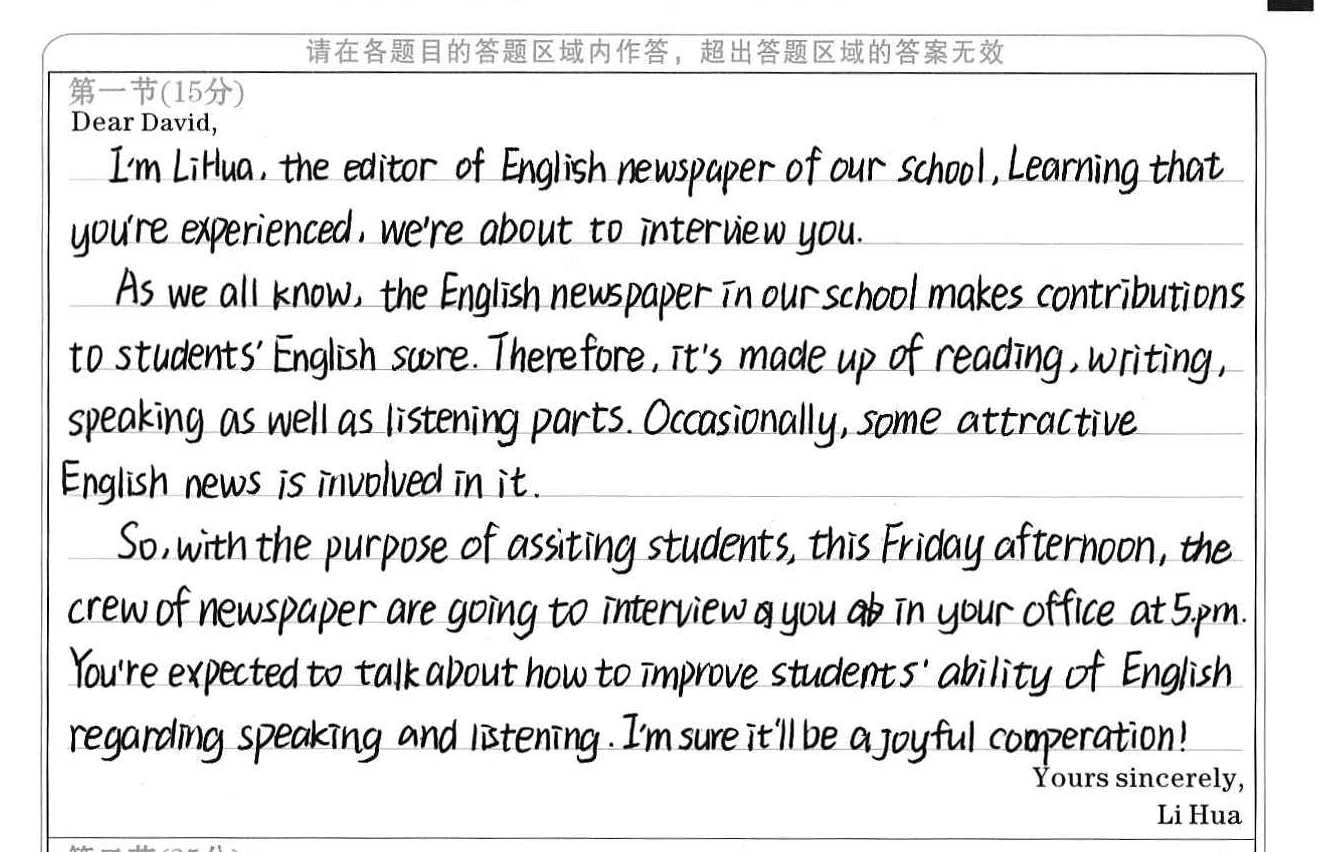 请在各题目的答题区域内作答，超出答题区域的答案无效
第一节(15分)
Dear David,
I'm LiHua, the editor of English newspaper of our school, Learning that
you're experienced, we're about to interview you.
As we all know, the English newspaper in our school makes contributions
to students' English score. Therefore, it's made up of reading, writing,
speaking as well as listening parts. Occasionally, some attractive
English news is involved in it.
So, with the purpose of assiting students, this Friday afternoon, the
crew of newspaper are going to interview you in your office at 5.pm.
You're expected to talk about how to improve students' ability of English
regarding speaking and listening. I'm sure it'll be a joyful cooperation!
Yours sincerely,
Li Hua